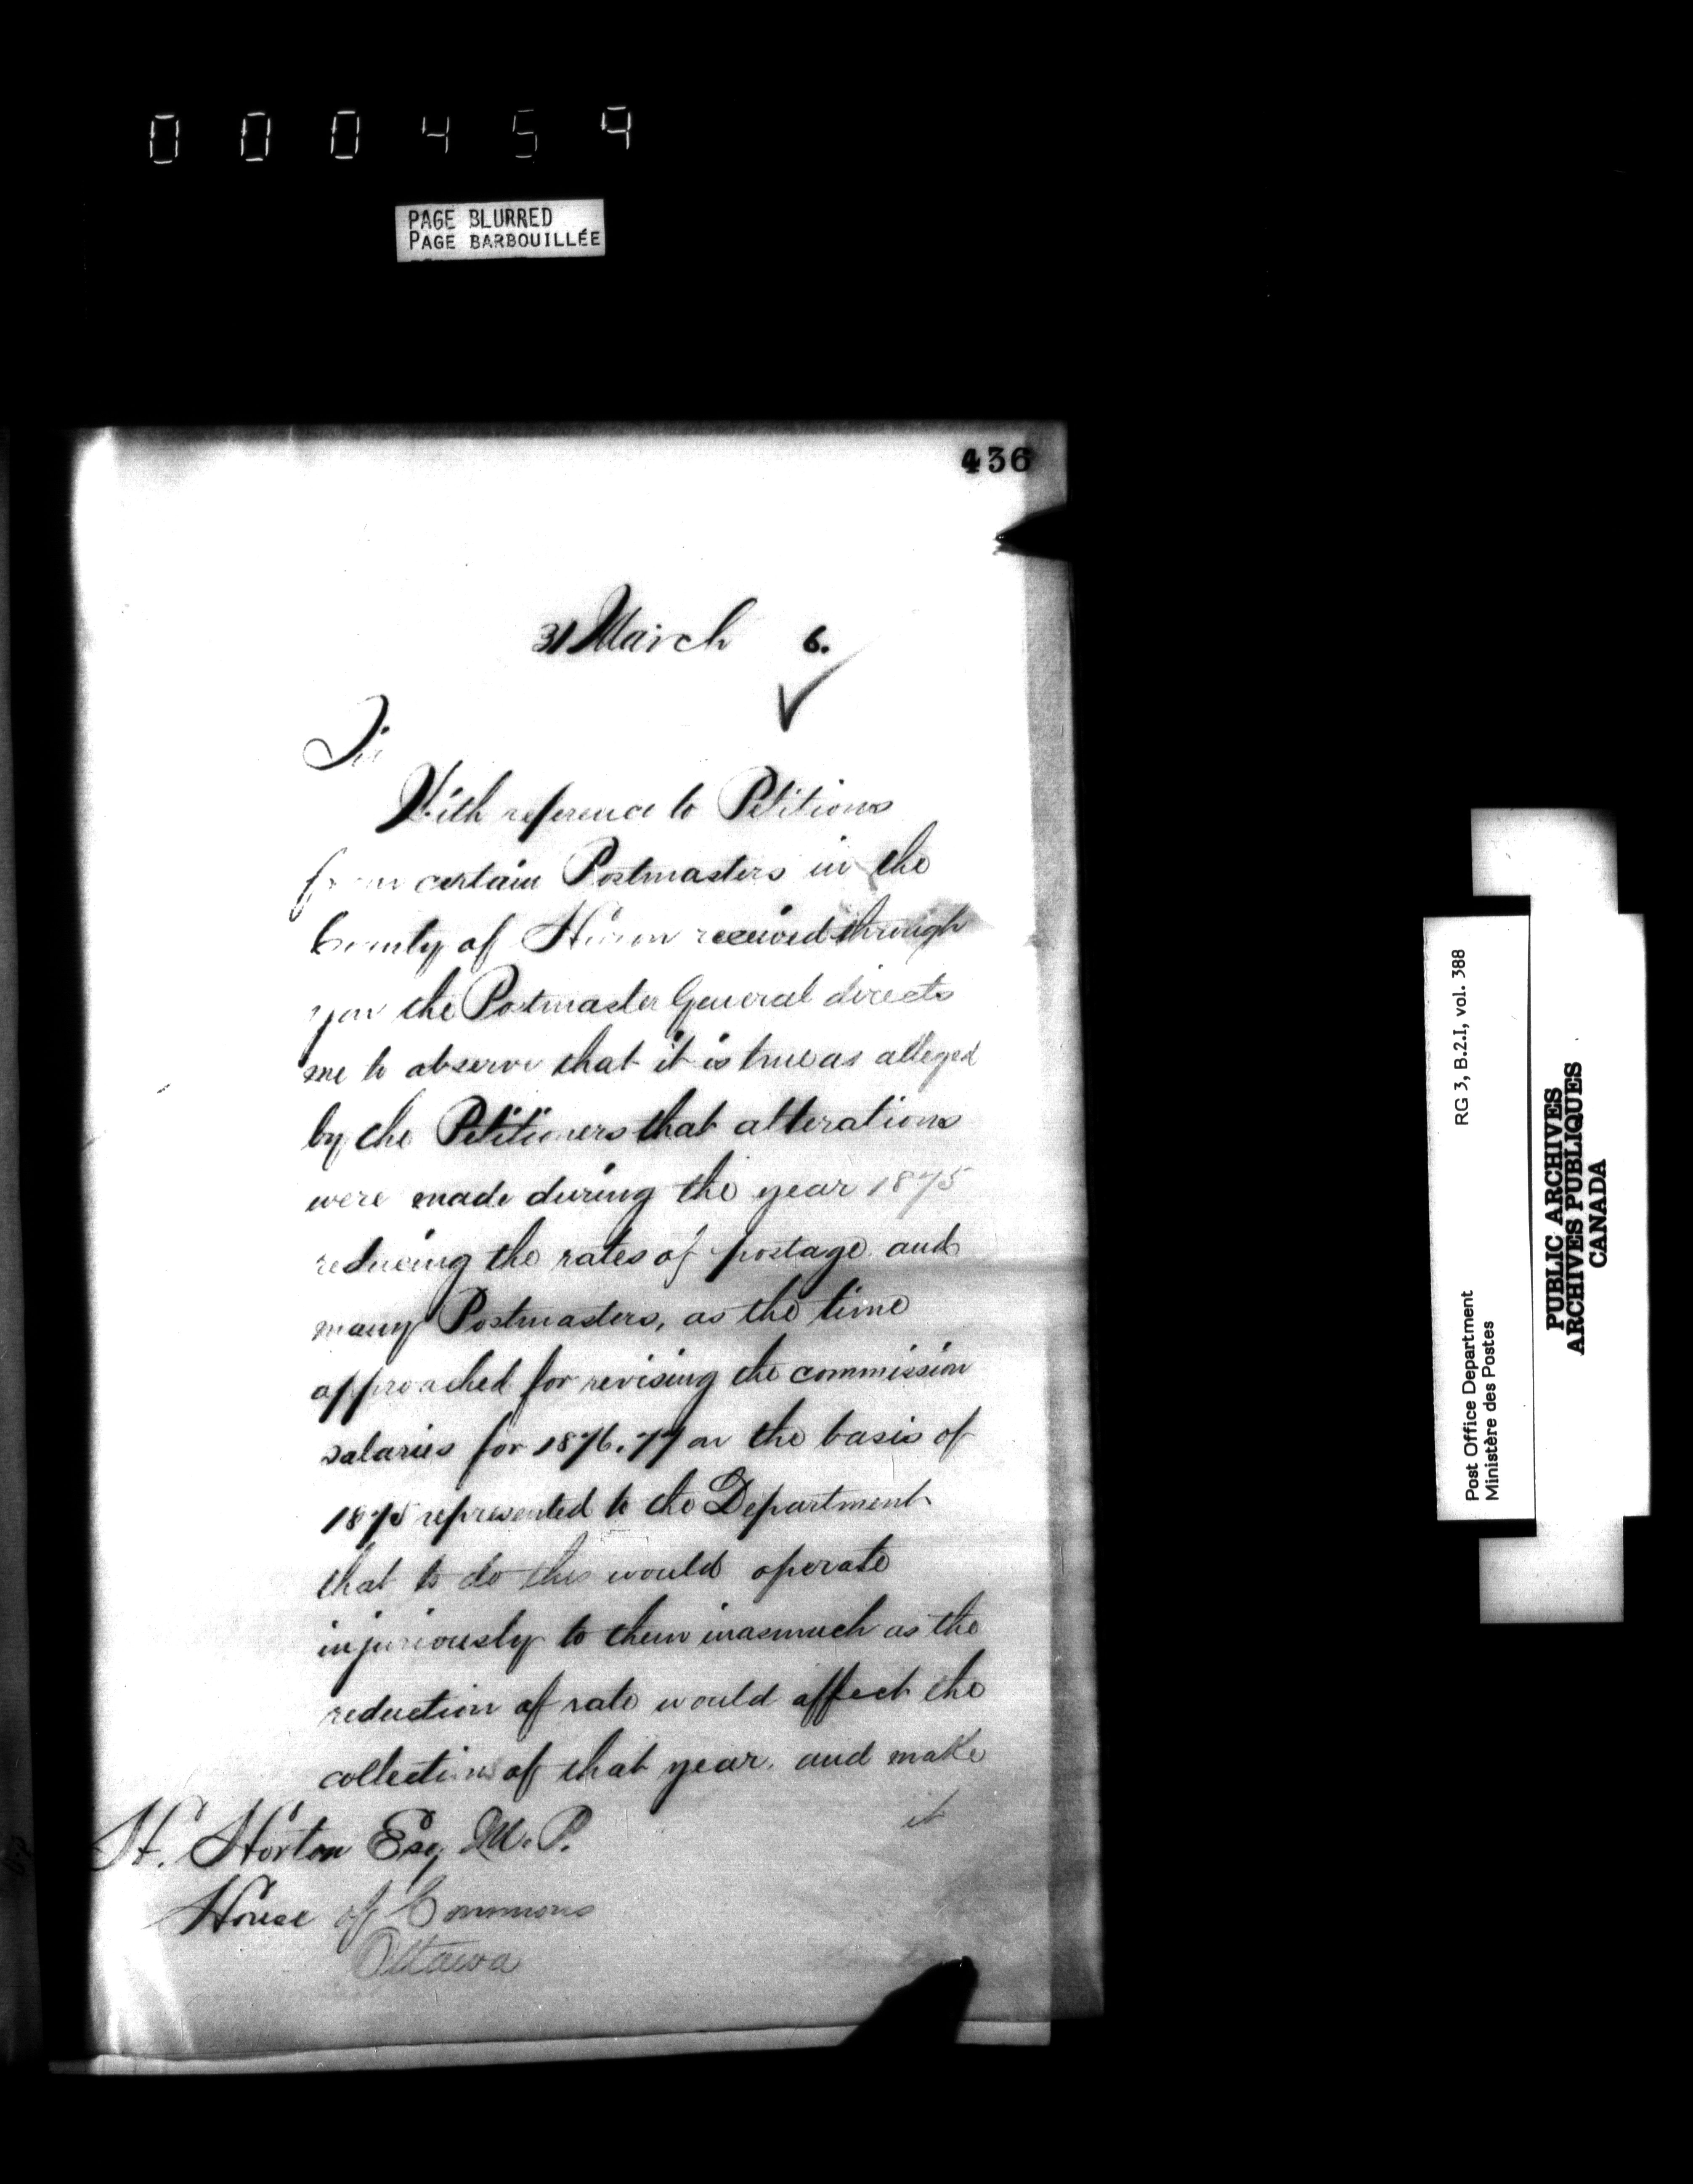 000459
PAGE BLURRED
PAGE BARBOUILLÉE
436
31 March 6.
Sir
With reference to Petitions
from certain Postmasters in the
County of Huron received through
you the Postmaster General directs
me to observe that it is true as alleged
by the Petitioners that alterations
were made during the year 1875
reducing the rates of postage and
many Postmasters, as the time
approached for revising the commission
salaries for 1876.77 on the basis of
1875 represented to the Department
that to do this would operate
injuriously to them inasmuch as the
reduction of rate would affect the
collections of that year, and make
it
H. Horton Esq M.P.
House of Commons
Ottawa
RG 3, B.2.I, vol. 388
Post Office Department
Ministère des Postes
PUBLIC ARCHIVES
ARCHIVES PUBLIQUES
CANADA